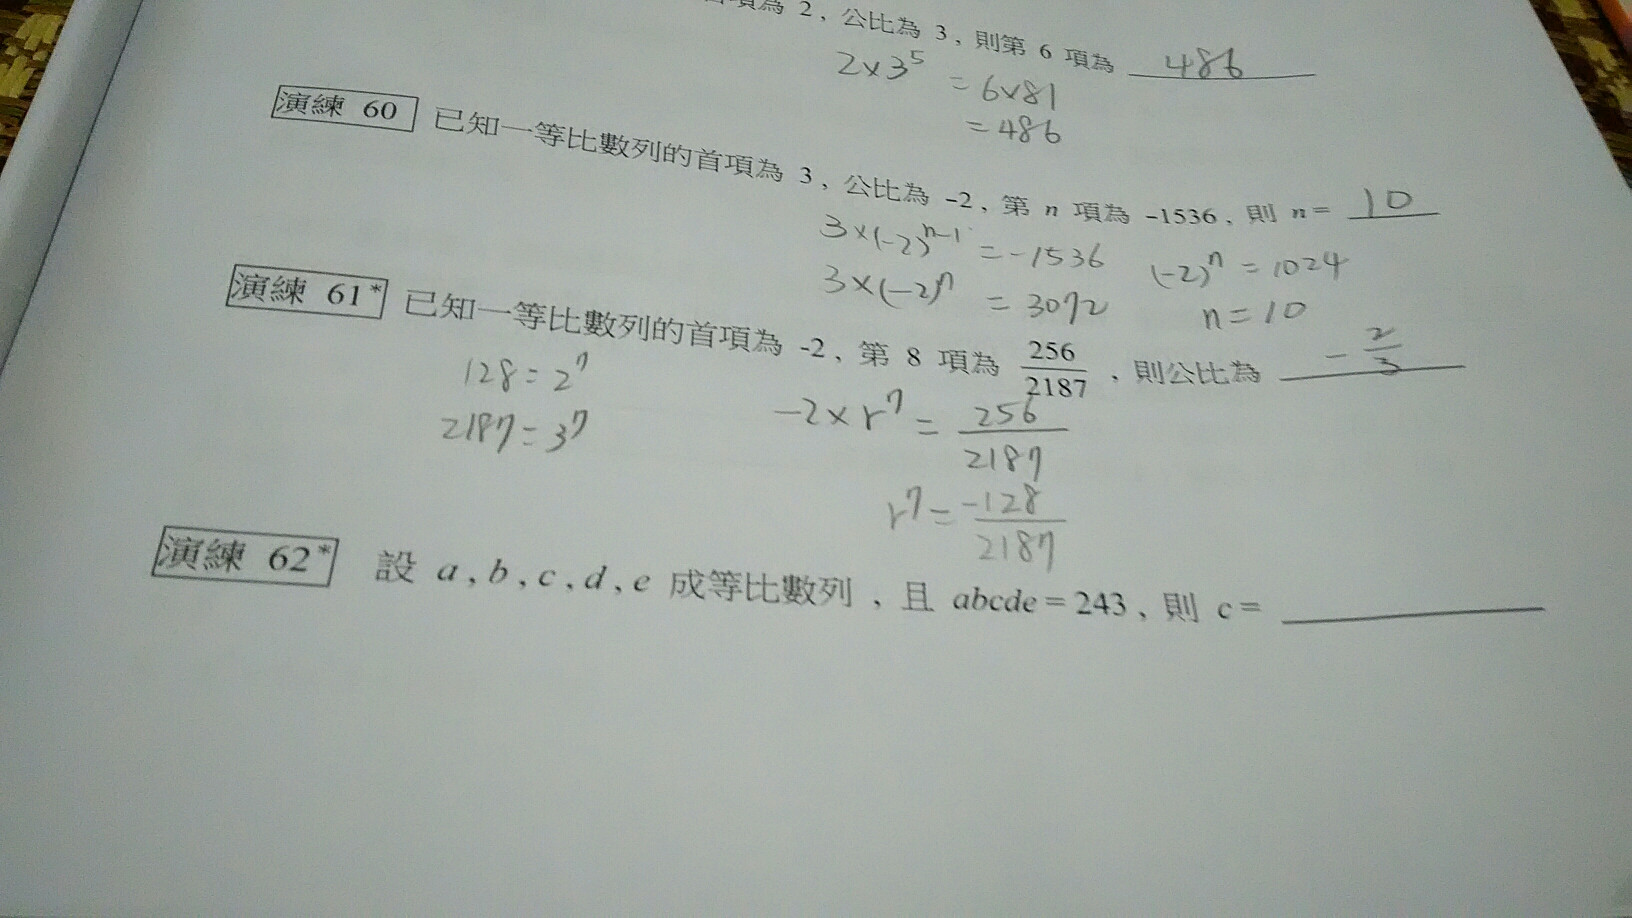 項為 2, 公比為 3, 則第 6 項為 486
2×3⁵ = 6×81
= 486
演練 60 已知一等比數列的首項為 3, 公比為 -2, 第 n 項為 -1536, 則 n = 10
3×(-2)ⁿ⁻¹ = -1536 (-2)ⁿ = 1024
3×(-2)ⁿ = 3072 n = 10
演練 61* 已知一等比數列的首項為 -2, 第 8 項為 256/2187, 則公比為 -2/3
128 = 2⁷
2187 = 3⁷
-2×r⁷ = 256/2187
r⁷ = -128/2187
演練 62* 設 a, b, c, d, e 成等比數列, 且 abcde = 243, 則 c =